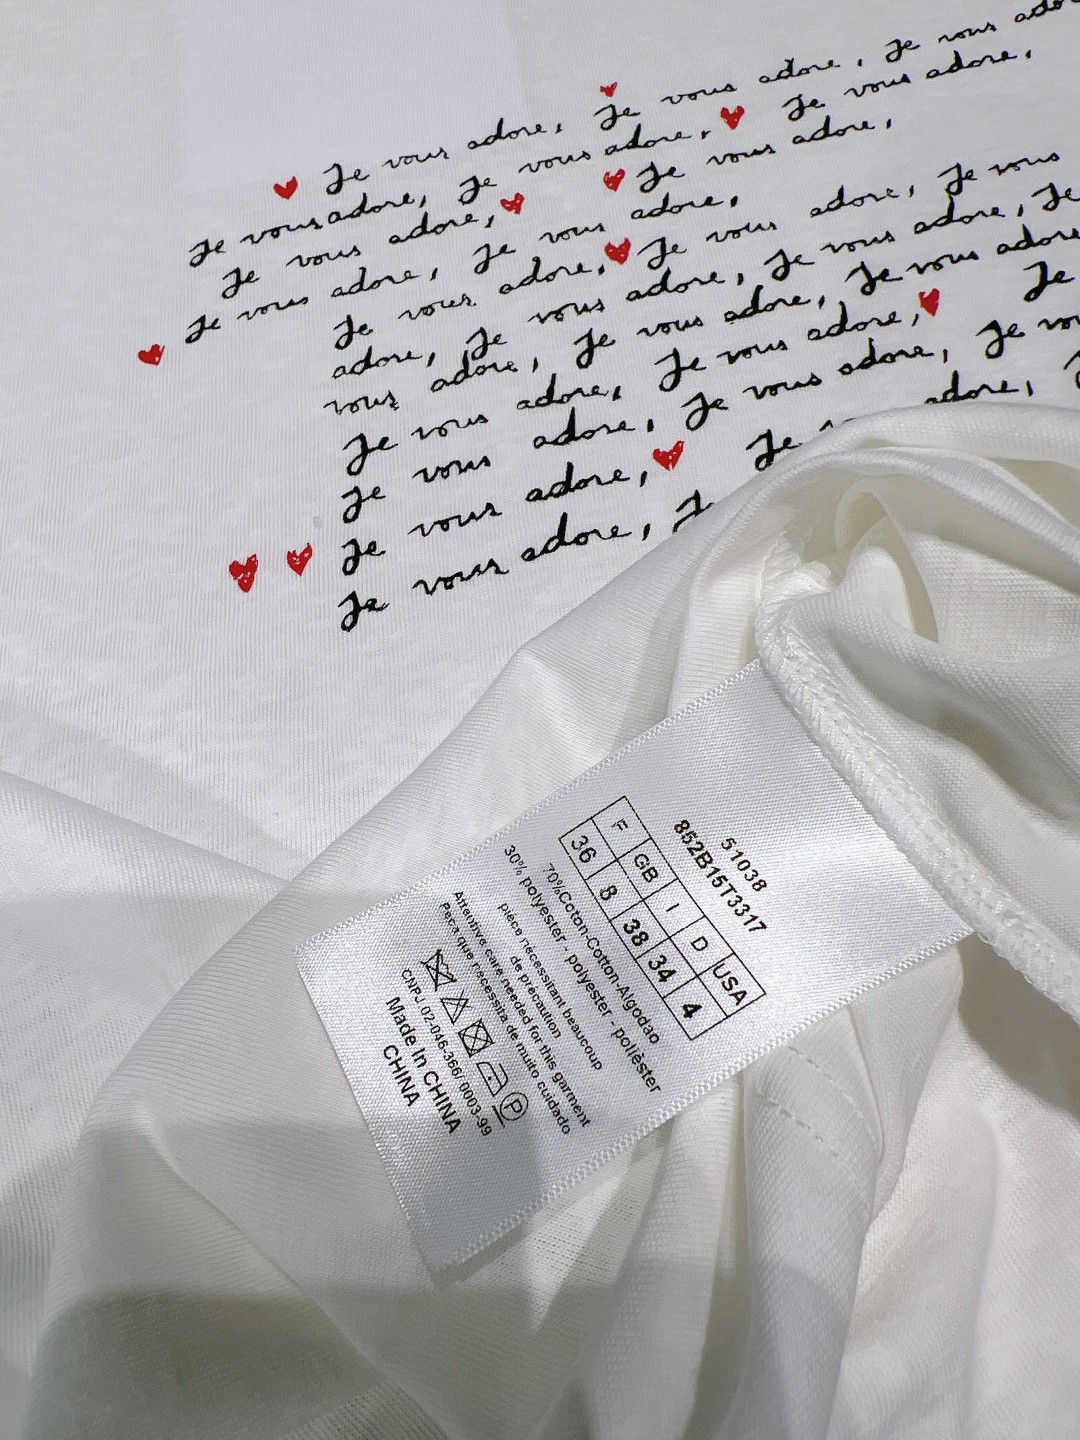 Je vous adore, Je vous adore, Je vous adore
Je vous adore, Je vous adore, Je vous adore,
Je vous adore, Je vous adore,
Je vous adore, Je vous adore,
Je vous adore, Je vous adore, Je vous
adore, Je vous adore, Je vous adore, Je
vous adore, Je vous adore, Je vous adore
Je vous adore, Je vous adore, Je
Je vous adore, Je vous adore, Je vous
Je vous adore, Je adore,
Je vous adore,
51038
852B15T3317
F GB I D USA
36 8 38 34 4
70%Coton-Cotton-Algodao
30% polyester - polyester - polièster
pièce nécessitant beaucoup
de précaution
Attentive care needed for this garment
Peca que necessita de muito cuidado
P
CNPJ 02-046-366/ 0003-99
Made In CHINA
CHINA